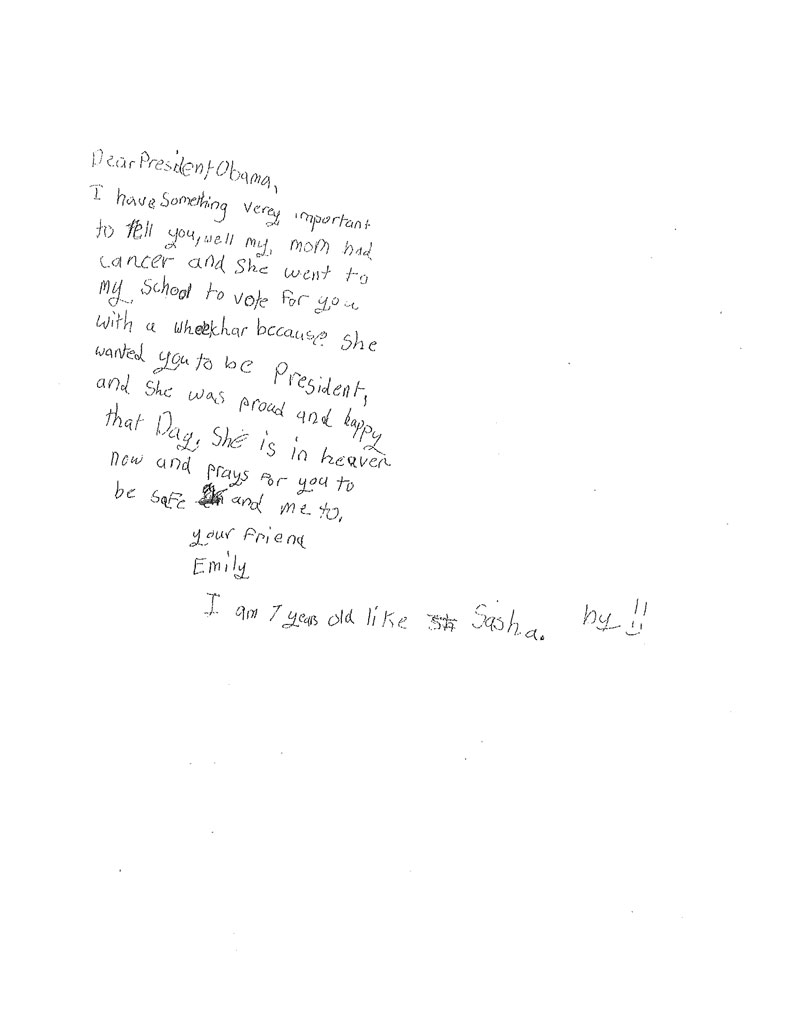 Dear President Obama,
I have something verey important
to tell you, well my mom had
cancer and she went to
my school to vote for you
with a wheelchar beccause she
wanted you to be President,
and she was proud and happy
that Day. She is in heaven
now and prays for you to
be safe and me to.
your friend
Emily
I am 7 years old like Sasha. by !!